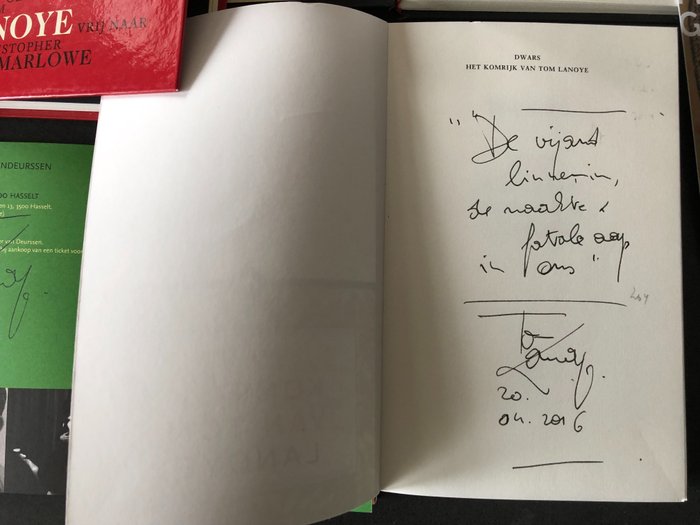 NOYE VRIJ NAAR
STOPHER
MARLOWE
NDEURSSEN
00 HASSELT
en 13, 3500 Hasselt.
er van Deurssen.
ij aankoop van een ticket voor
DWARS
HET KOMRIJK VAN TOM LANOYE
"De vijand
binnenin,
de naakte &
fatale aap
in ons"
Tom
Lanoye
20.
04.2016